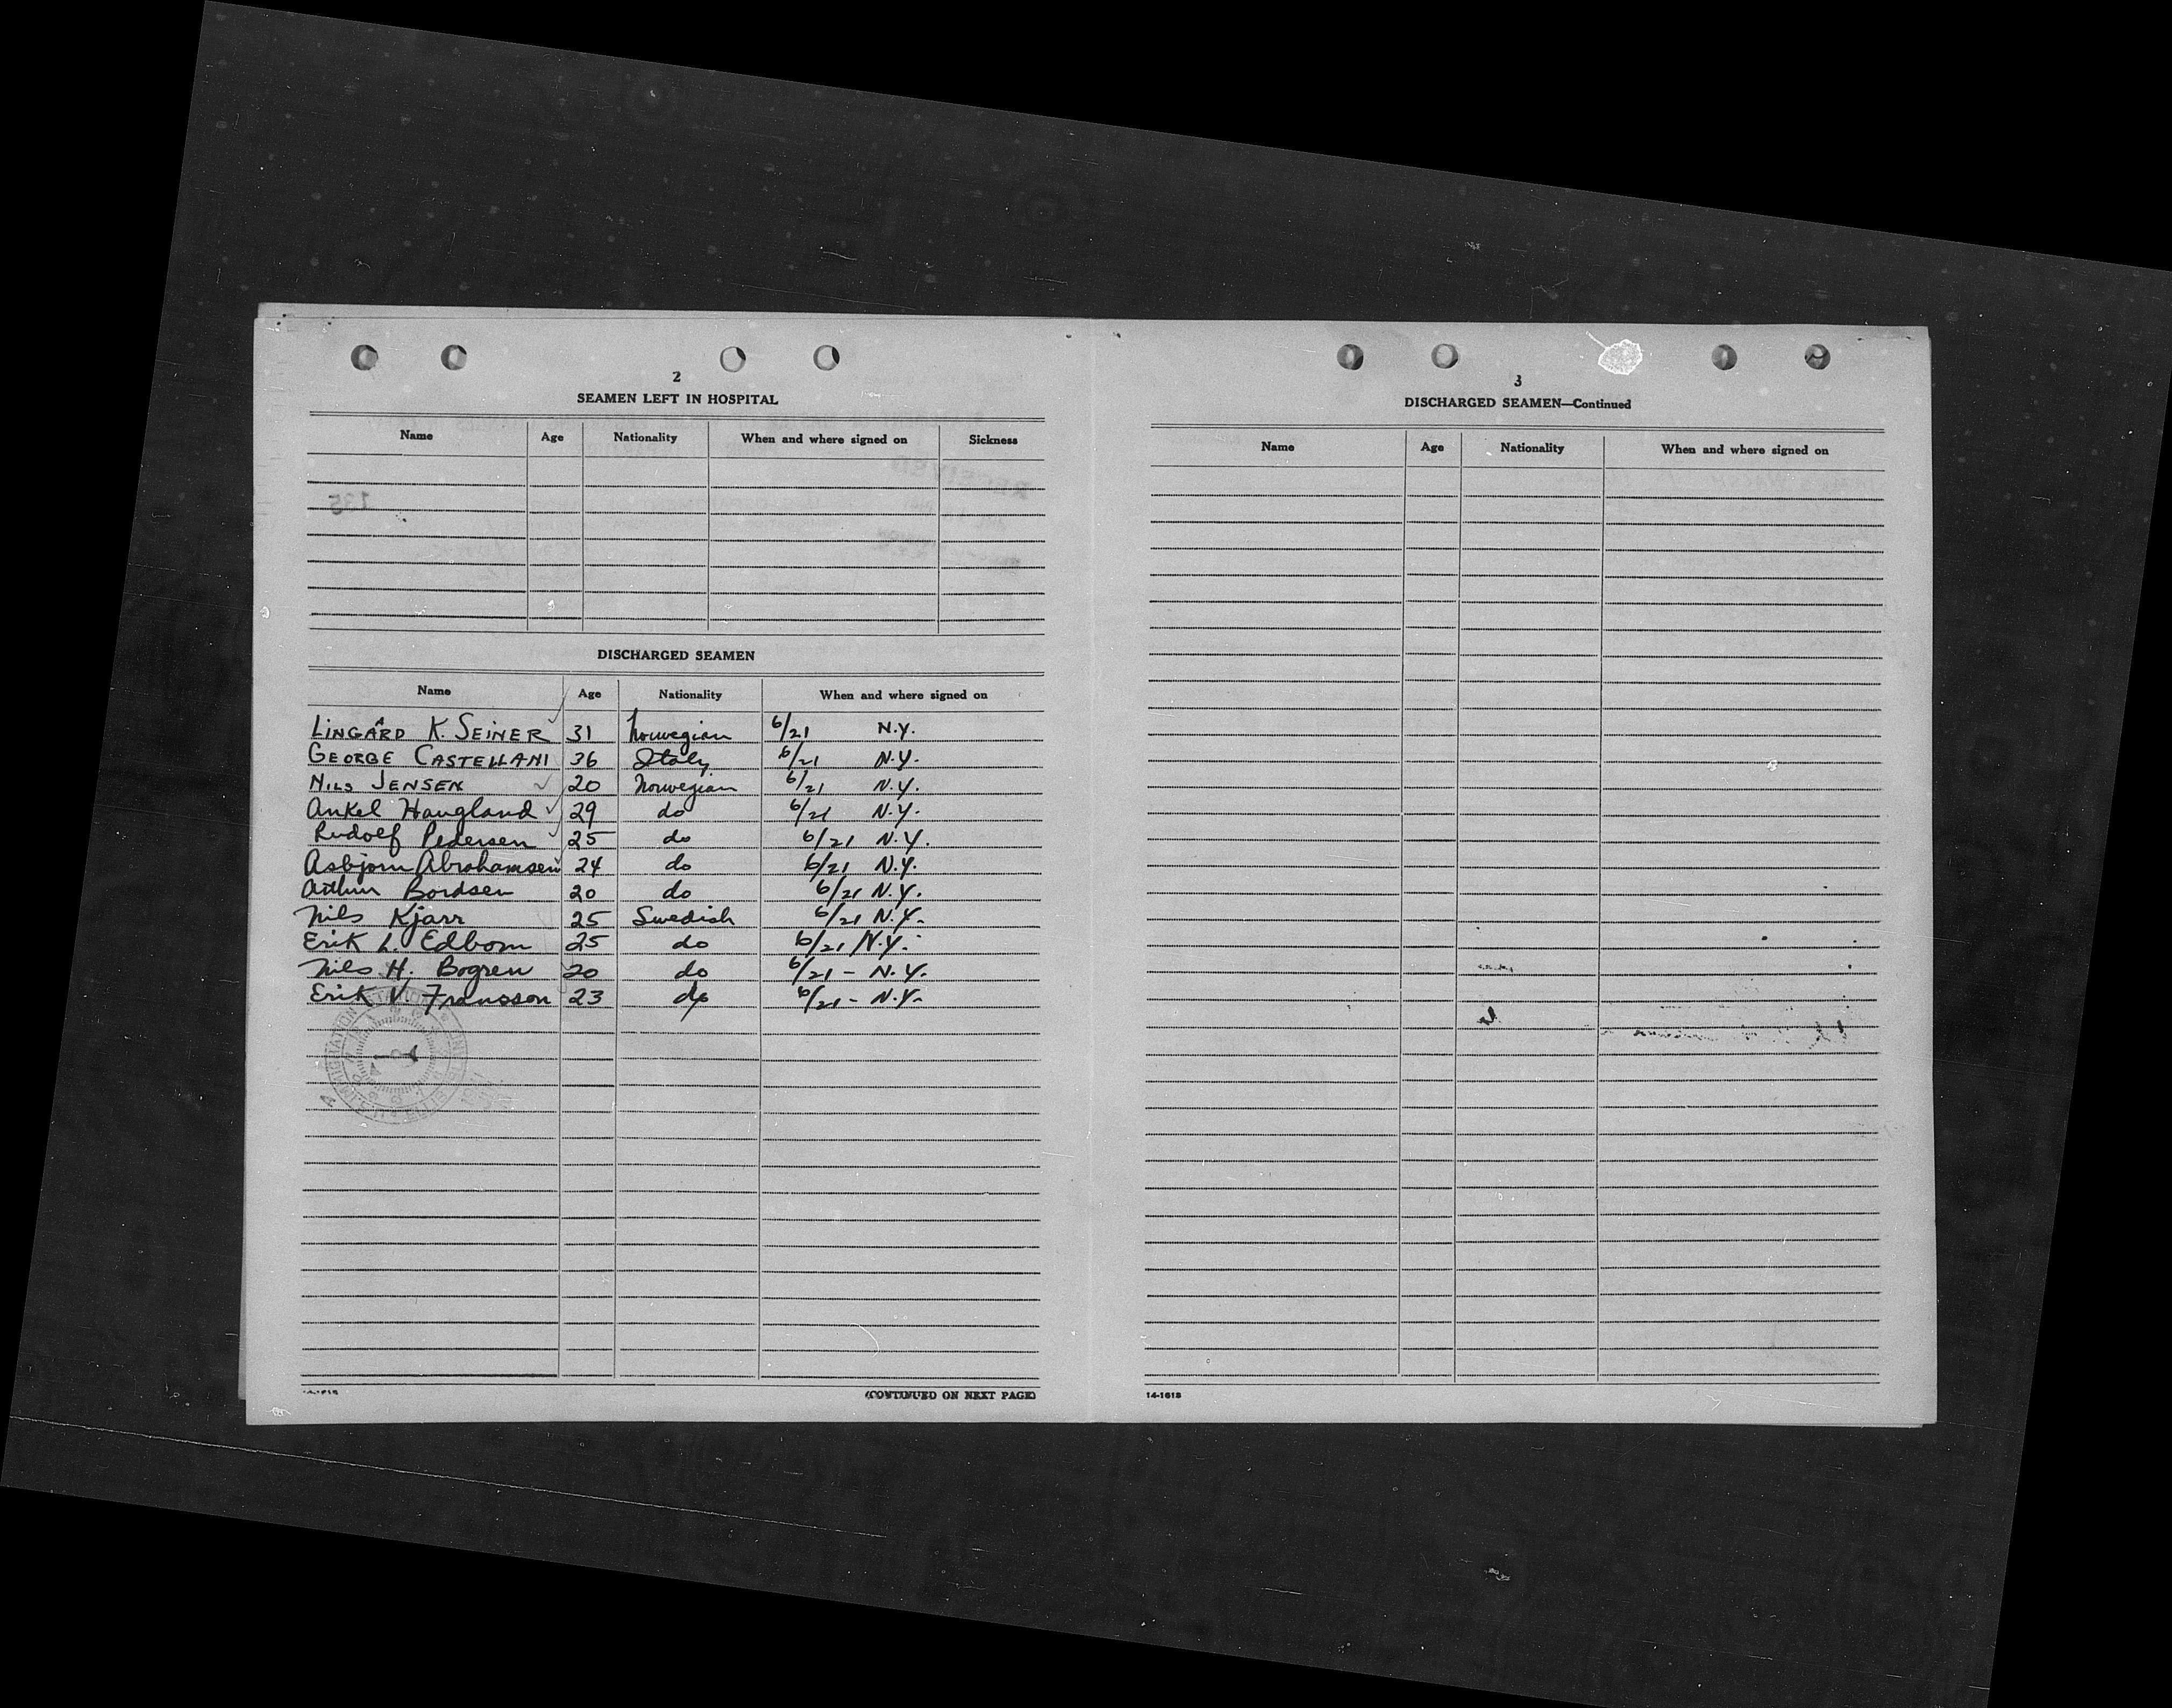 2
SEAMEN LEFT IN HOSPITAL
Name Age Nationality When and where signed on Sickness
DISCHARGED SEAMEN
Name Age Nationality When and where signed on
LINGÂRD K. SEINER 31 Norwegian 6/21 N.Y.
GEORGE CASTELLANI 36 Italy 6/21 N.Y.
NILS JENSEN 20 Norwegian 6/21 N.Y.
Ankel Haugland 29 do 6/21 N.Y.
Rudolf Pedersen 25 do 6/21 N.Y.
Asbjorn Abrahamsen 24 do 6/21 N.Y.
Arthur Bordsen 20 do 6/21 N.Y.
Nils Kjarr 25 Swedish 6/21 N.Y.
Erik L. Edbom 25 do 6/21 N.Y.
Nils H. Bogren 20 do 6/21 - N.Y.
Erik V. Fransson 23 do 6/21 - N.Y.
(CONTINUED ON NEXT PAGE)
3
DISCHARGED SEAMEN—Continued
Name Age Nationality When and where signed on
14-1618